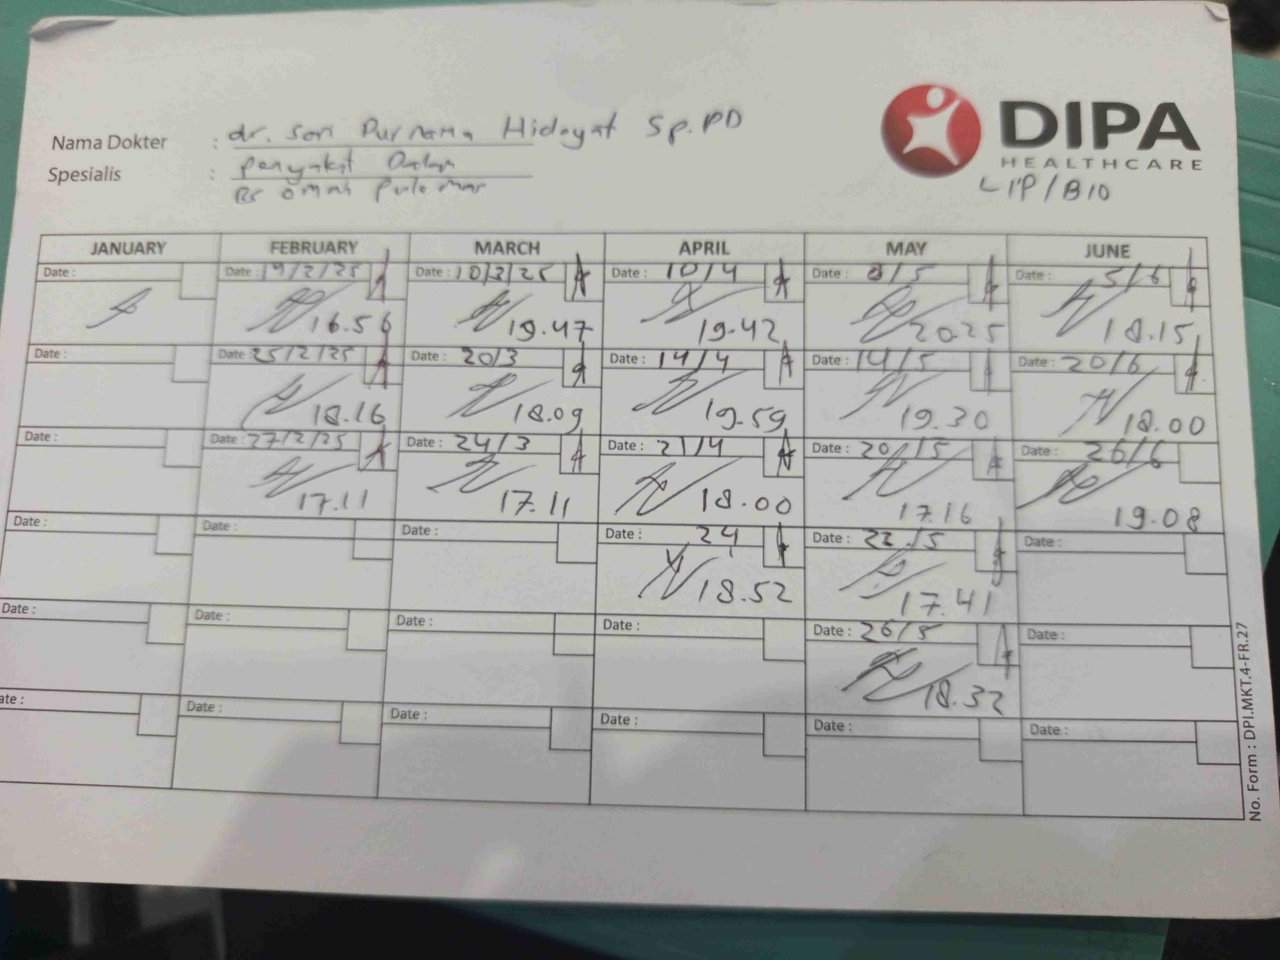 DIPA
HEALTHCARE
LIP/B10
Nama Dokter : dr. Purnama Hidayat Sp.PD
Spesialis : Penyakit Dalam
RS
JANUARY FEBRUARY MARCH APRIL MAY JUNE
Date : Date : 19/2/25 Date : 10/3/25 Date : 10/4 Date : 8/5 Date : 5/6
16.56 19.47 19.42 20.25 18.15
Date : Date : 25/2/25 Date : 20/3 Date : 14/4 Date : 14/5 Date : 20/6
18.16 18.09 19.59 19.30 18.00
Date : Date : 27/2/25 Date : 24/3 Date : 21/4 Date : 20/5 Date : 26/6
17.11 17.11 18.00 17.16 19.08
Date : Date : Date : Date : 24 Date : 22/5 Date :
18.52 17.41
Date : Date : Date : Date : Date : 26/5 Date :
18.32
ate : Date : Date : Date : Date : Date :
No. Form : DPI.MKT.4-FR.27